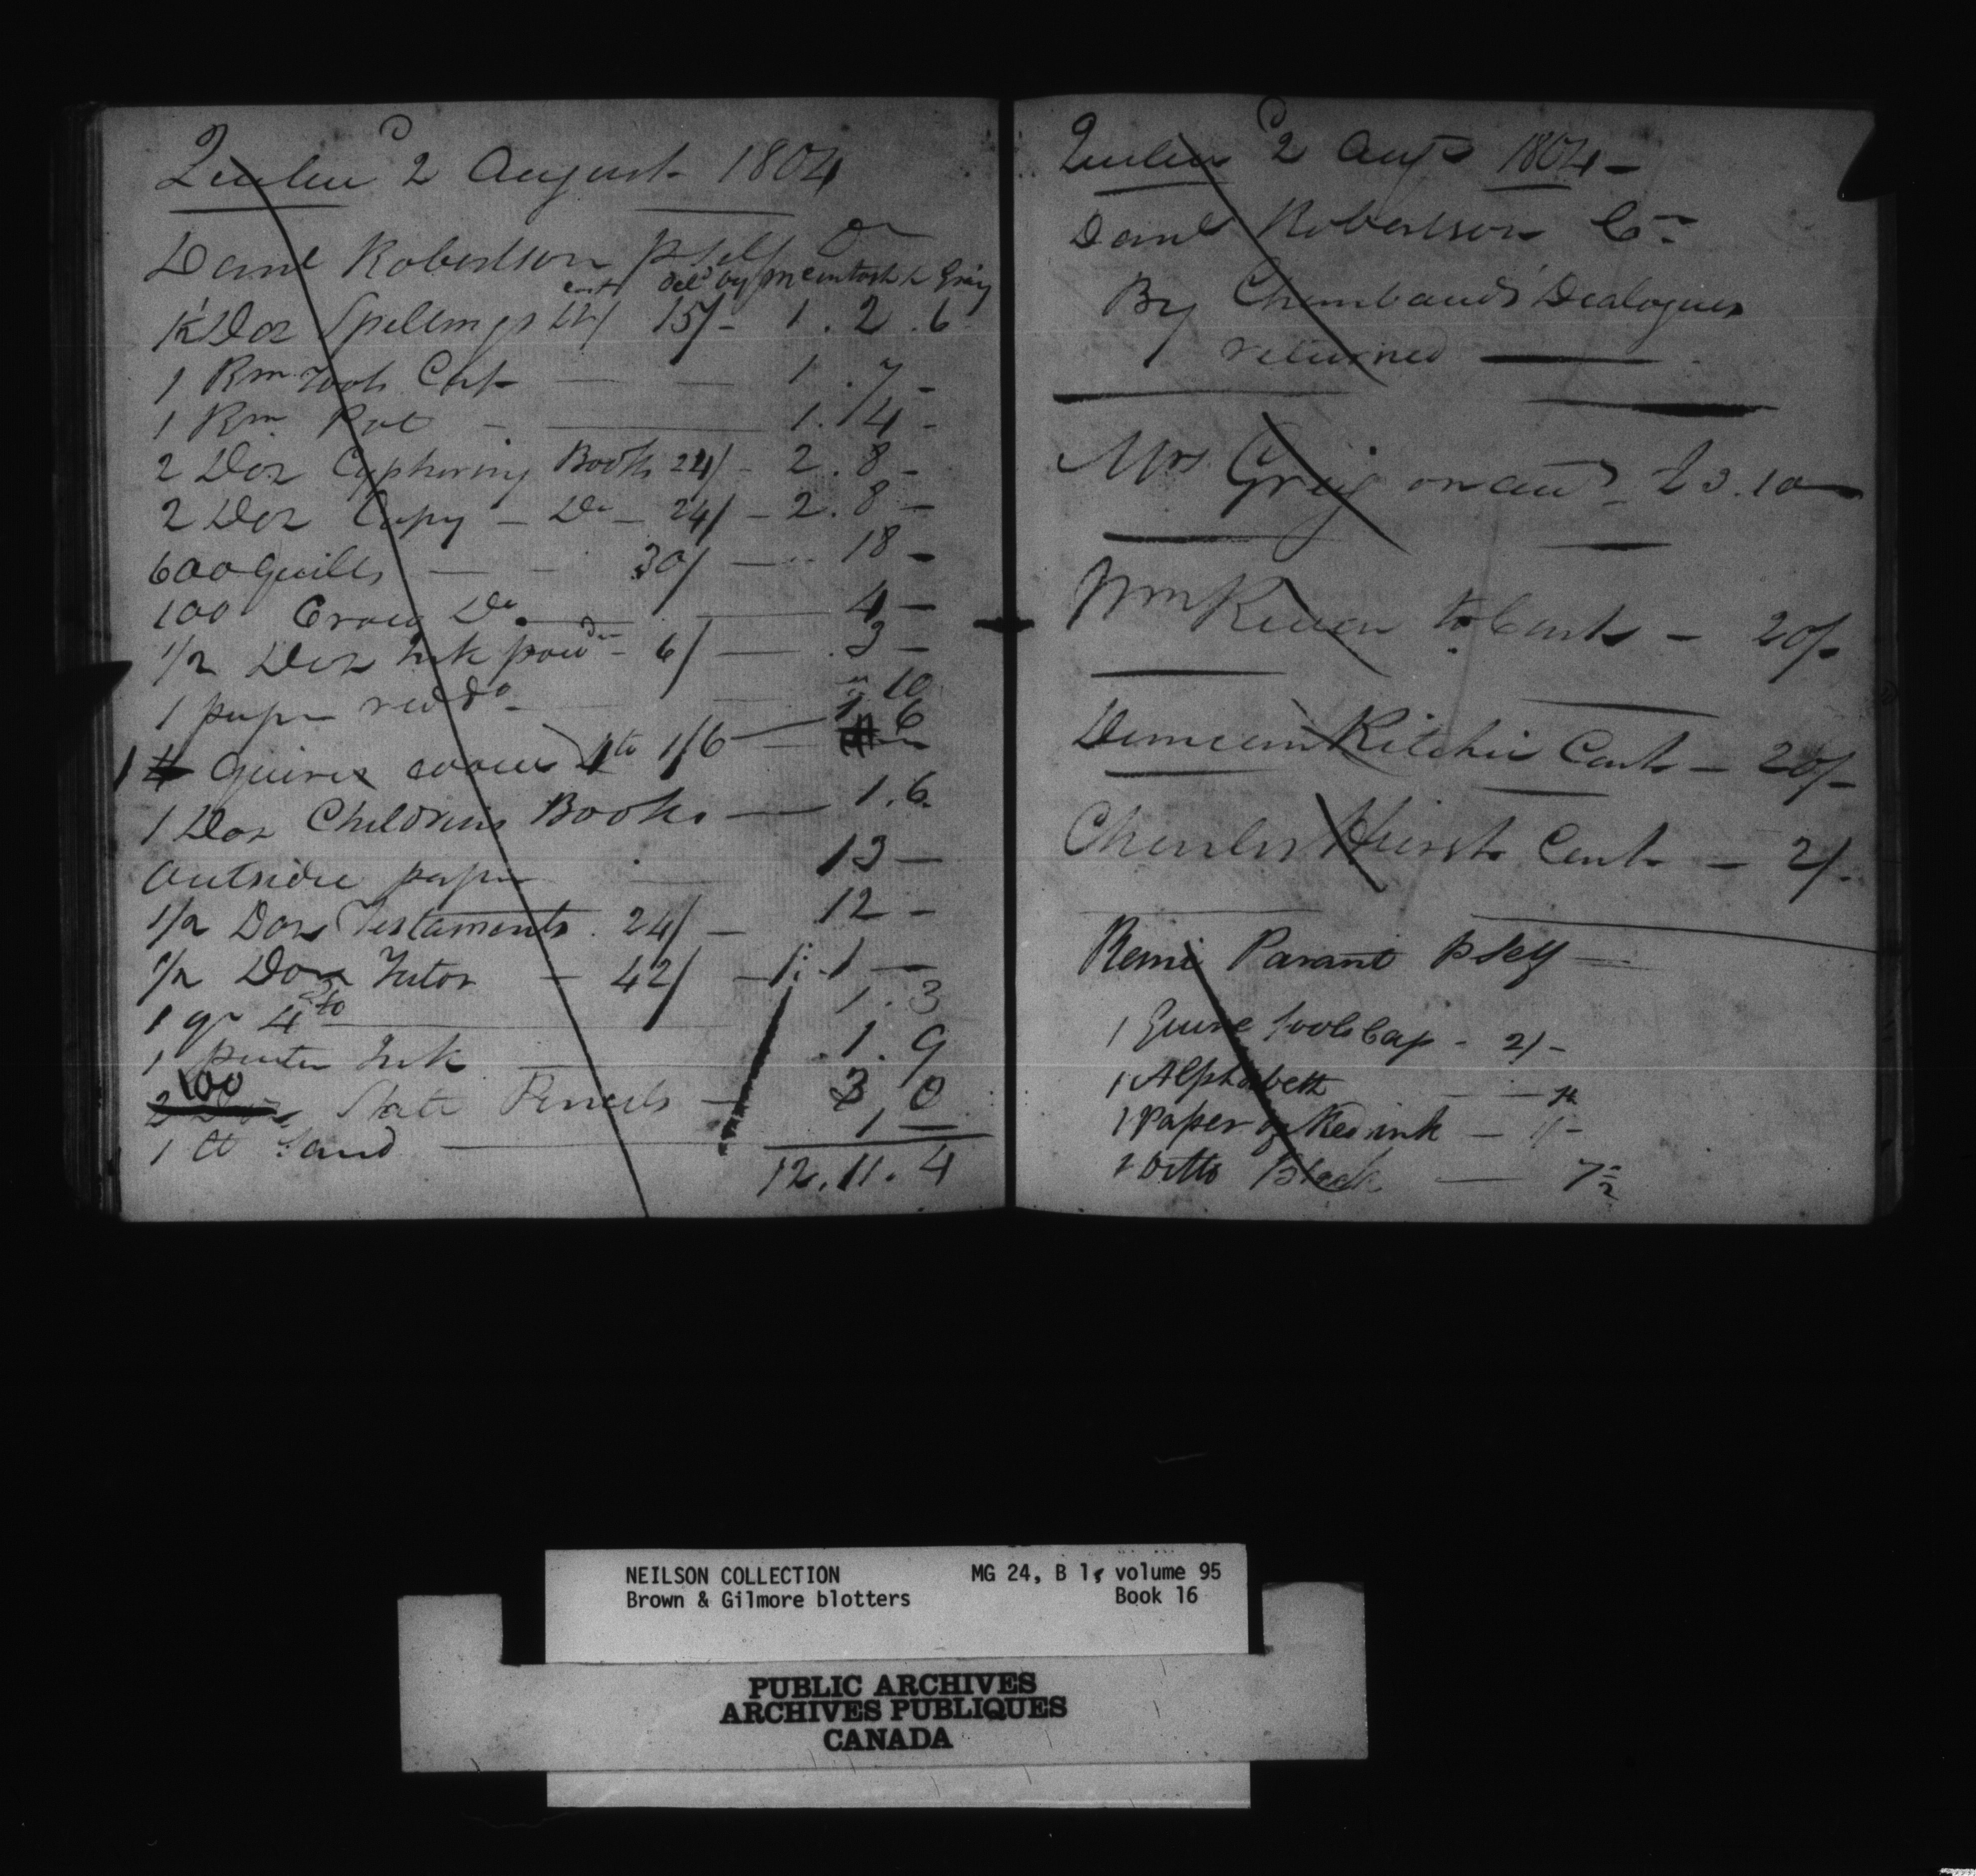 Quebec 2 August 1804
Danl Robertson pself Dr
deld by McIntosh &
1½ Doz Spellings 15/- 1.2.6
1 Rm Fools Cap — — 1.7-
1 Rm Pot - — 1.14-
2 Doz Cyphering Books 24/- 2.8-
2 Doz Copy - Do - 24/- 2.8-
600 Quills — - 30/ — 18-
100 Crow Do — 4-
1/2 Doz Ink powdr - 6/ — 3-
1 paper red do - 10
1 Quires 4to 1/6 — 1 6
1 Doz Childrens Books — 1.6
Outside paper — 13-
1/2 Doz Testaments 24/ — 12-
1/2 Doz Tutor - 42/ - 1:1-
1 qr 4to — 1.3
1 Ink — 1.9
100 Slate Pencils — 3,0
1 lb Sand — 1,-
12.11.4
Quebec 2 Augt 1804-
Danl Robertson Cr
By Chambauds Dialogues
returned —
Mrs Gray on acct £3.10-
Wm to Cash - 20/-
Duncan Ritchie Cash - 20/-
Charles Hirst Cash - 2/-
Remi Parant pself —
1 Quire fools Cap - 2/-
1 Alphabett
1 Paper of Red ink — 1/-
1 Ditto Black — 7½
NEILSON COLLECTION MG 24, B 1, volume 95
Brown & Gilmore blotters Book 16
PUBLIC ARCHIVES
ARCHIVES PUBLIQUES
CANADA